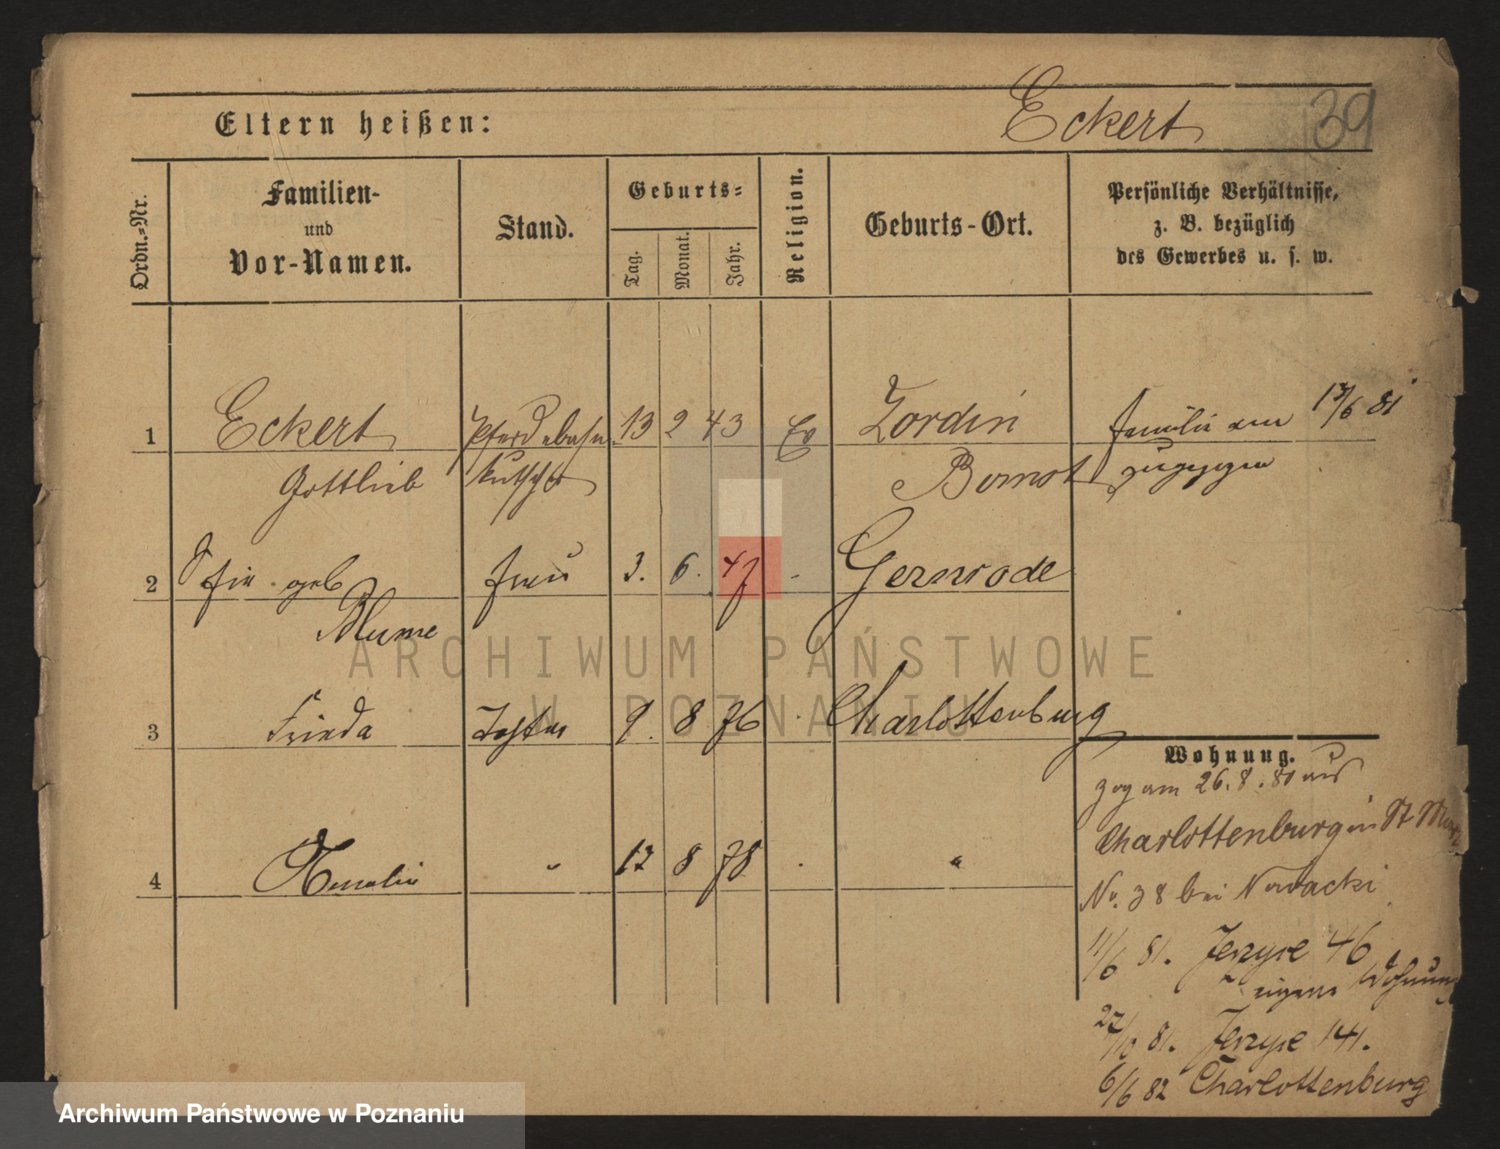 Eltern heißen: Eckert 39
Ordn.=Nr.
Familien-
und
Vor-Namen.
Stand.
Geburts=
Tag.
Monat.
Jahr.
Religion.
Geburts-Ort.
Persönliche Verhältnisse,
z. B. bezüglich
des Gewerbes u. s. w.
1 Eckert Pferdebahn 13 2 43 Ev Zordin Familie am 13/6 81
Gottlieb kutscher Bomst zugezogen
2 geb Frau 3. 6. 47 - Gernrode
Blume
3 Frieda Tochter 9. 8 76 Charlottenburg
4 Amalie " 12 8 78 "
Wohnung.
zog am 26.8.80 aus
Charlottenburg in St
No. 38 bei Nowacki
11/6 81. Jerzyce 46
eigene Wohnung
22/10 81. Jerzyce 141.
6/6 82 Charlottenburg
ARCHIWUM PAŃSTWOWE
W POZNANIU
Archiwum Państwowe w Poznaniu